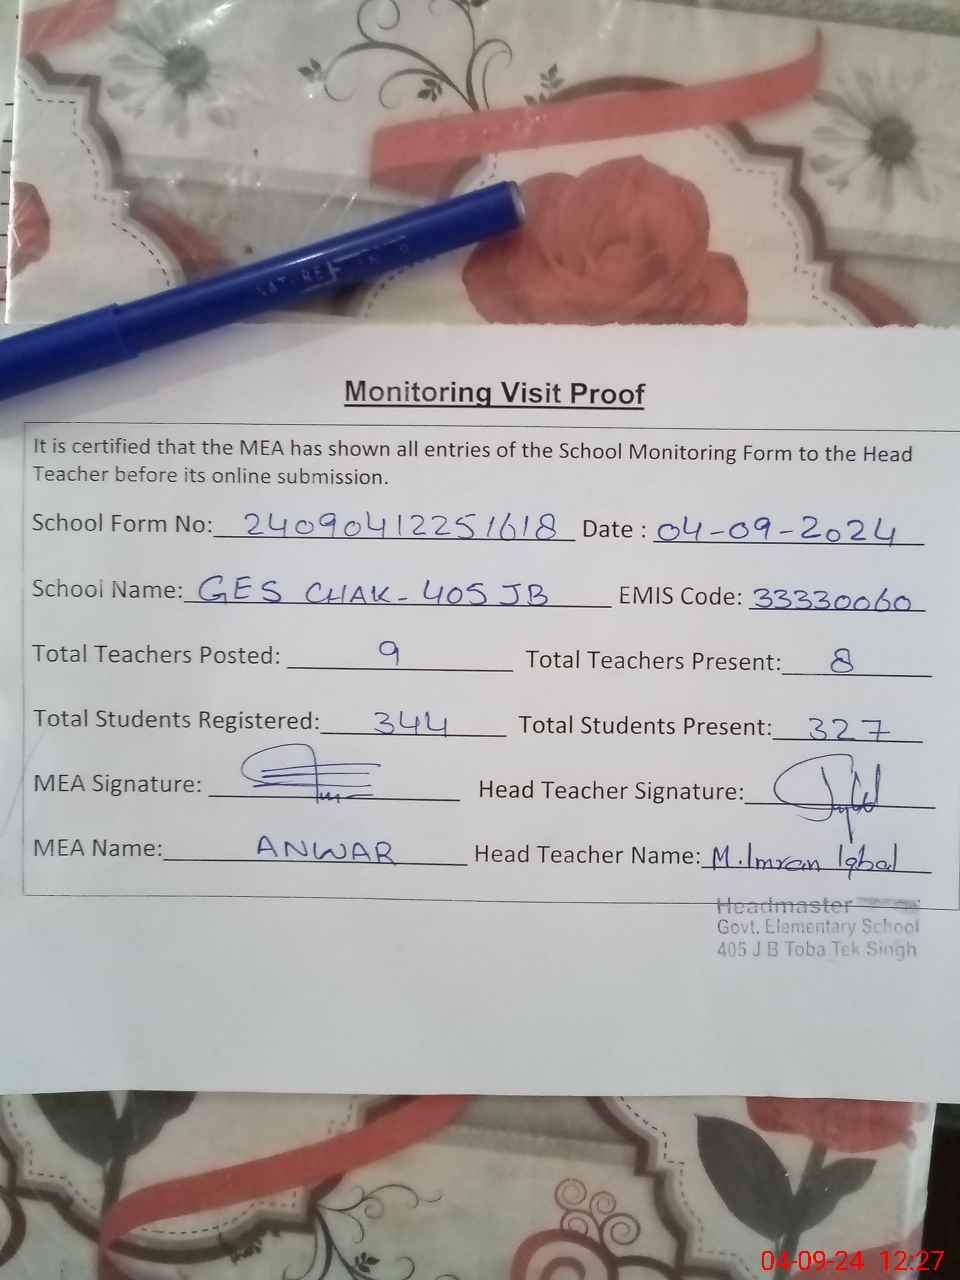 Monitoring Visit Proof
It is certified that the MEA has shown all entries of the School Monitoring Form to the Head
Teacher before its online submission.
School Form No: 24090412251618 Date : 04-09-2024
School Name: GES CHAK- 405 JB EMIS Code: 33330060
Total Teachers Posted: 9 Total Teachers Present: 8
Total Students Registered: 344 Total Students Present: 327
MEA Signature: Head Teacher Signature:
MEA Name: ANWAR Head Teacher Name: M. Imran Iqbal
Headmaster
Govt. Elementary School
405 J B Toba Tek Singh
04-09-24 12:27